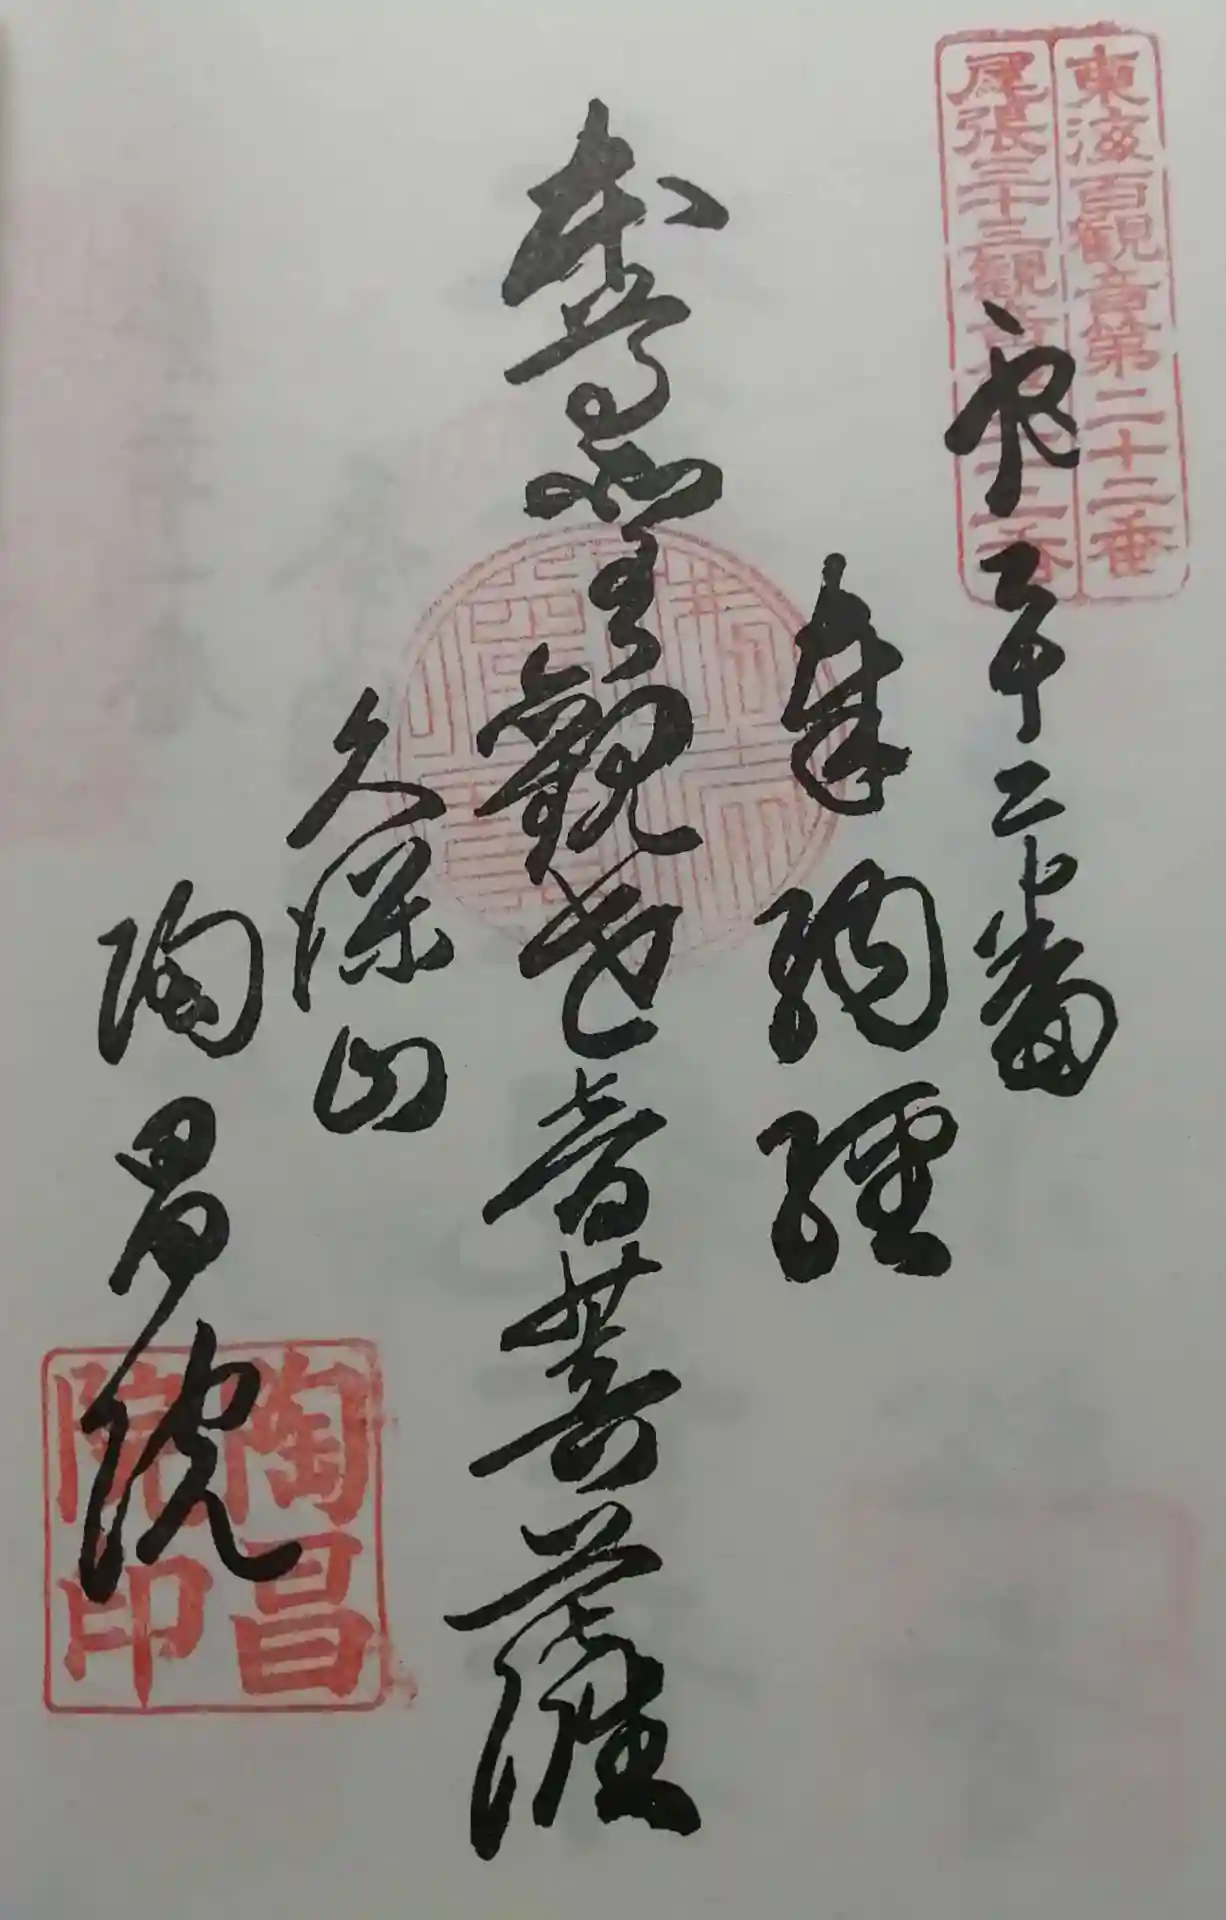 東海百観音第二十二番
尾張三十三観音第二十二番
第二十二番
奉納經
本尊 聖觀世音菩薩
久保山
陶昌院
陶昌院印